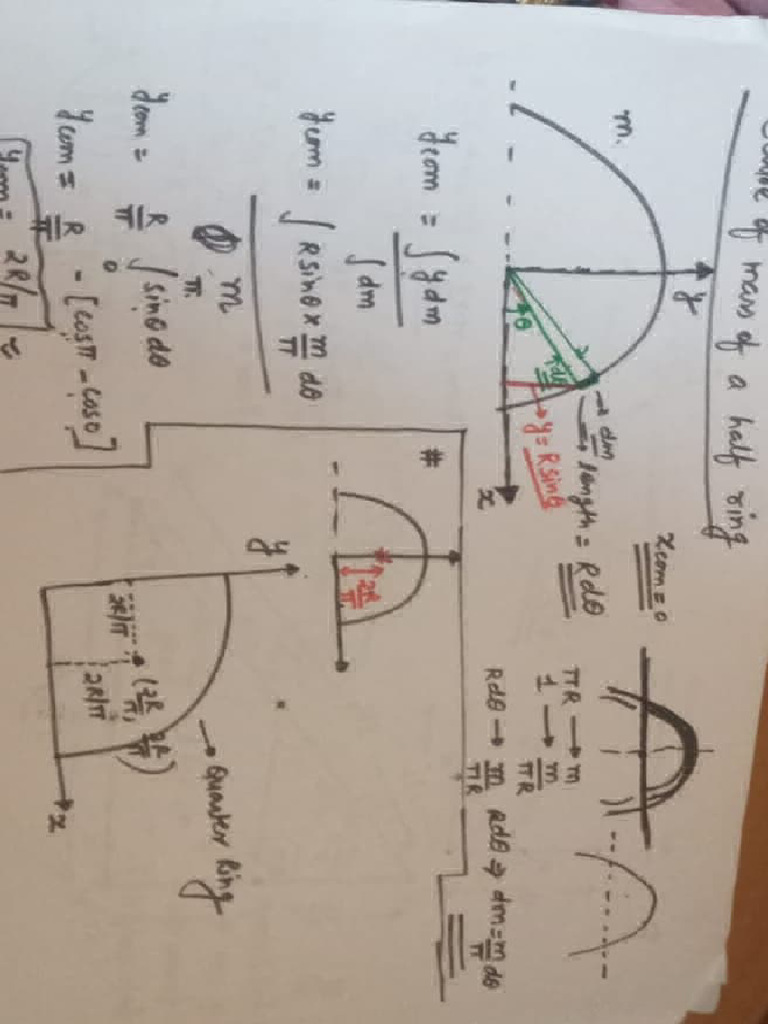 of mass of a half ring
xcom = 0
m.
y
θ
Rdθ
dm
length = Rdθ
y = R sinθ
x
πR → m
1 → m/πR
Rdθ → m/πR Rdθ ⇒ dm = m/π dθ
ycom = ∫ydm / ∫dm
ycom = ∫ R sinθ × m/π dθ / m
ycom = R/π ∫₀^π sinθ dθ
ycom = R/π - [cosπ - cos0]
ycom = 2R/π
#
2R/π
y
→ Quarter Ring
(2R/π, 2R/π)
2R/π
2R/π
x